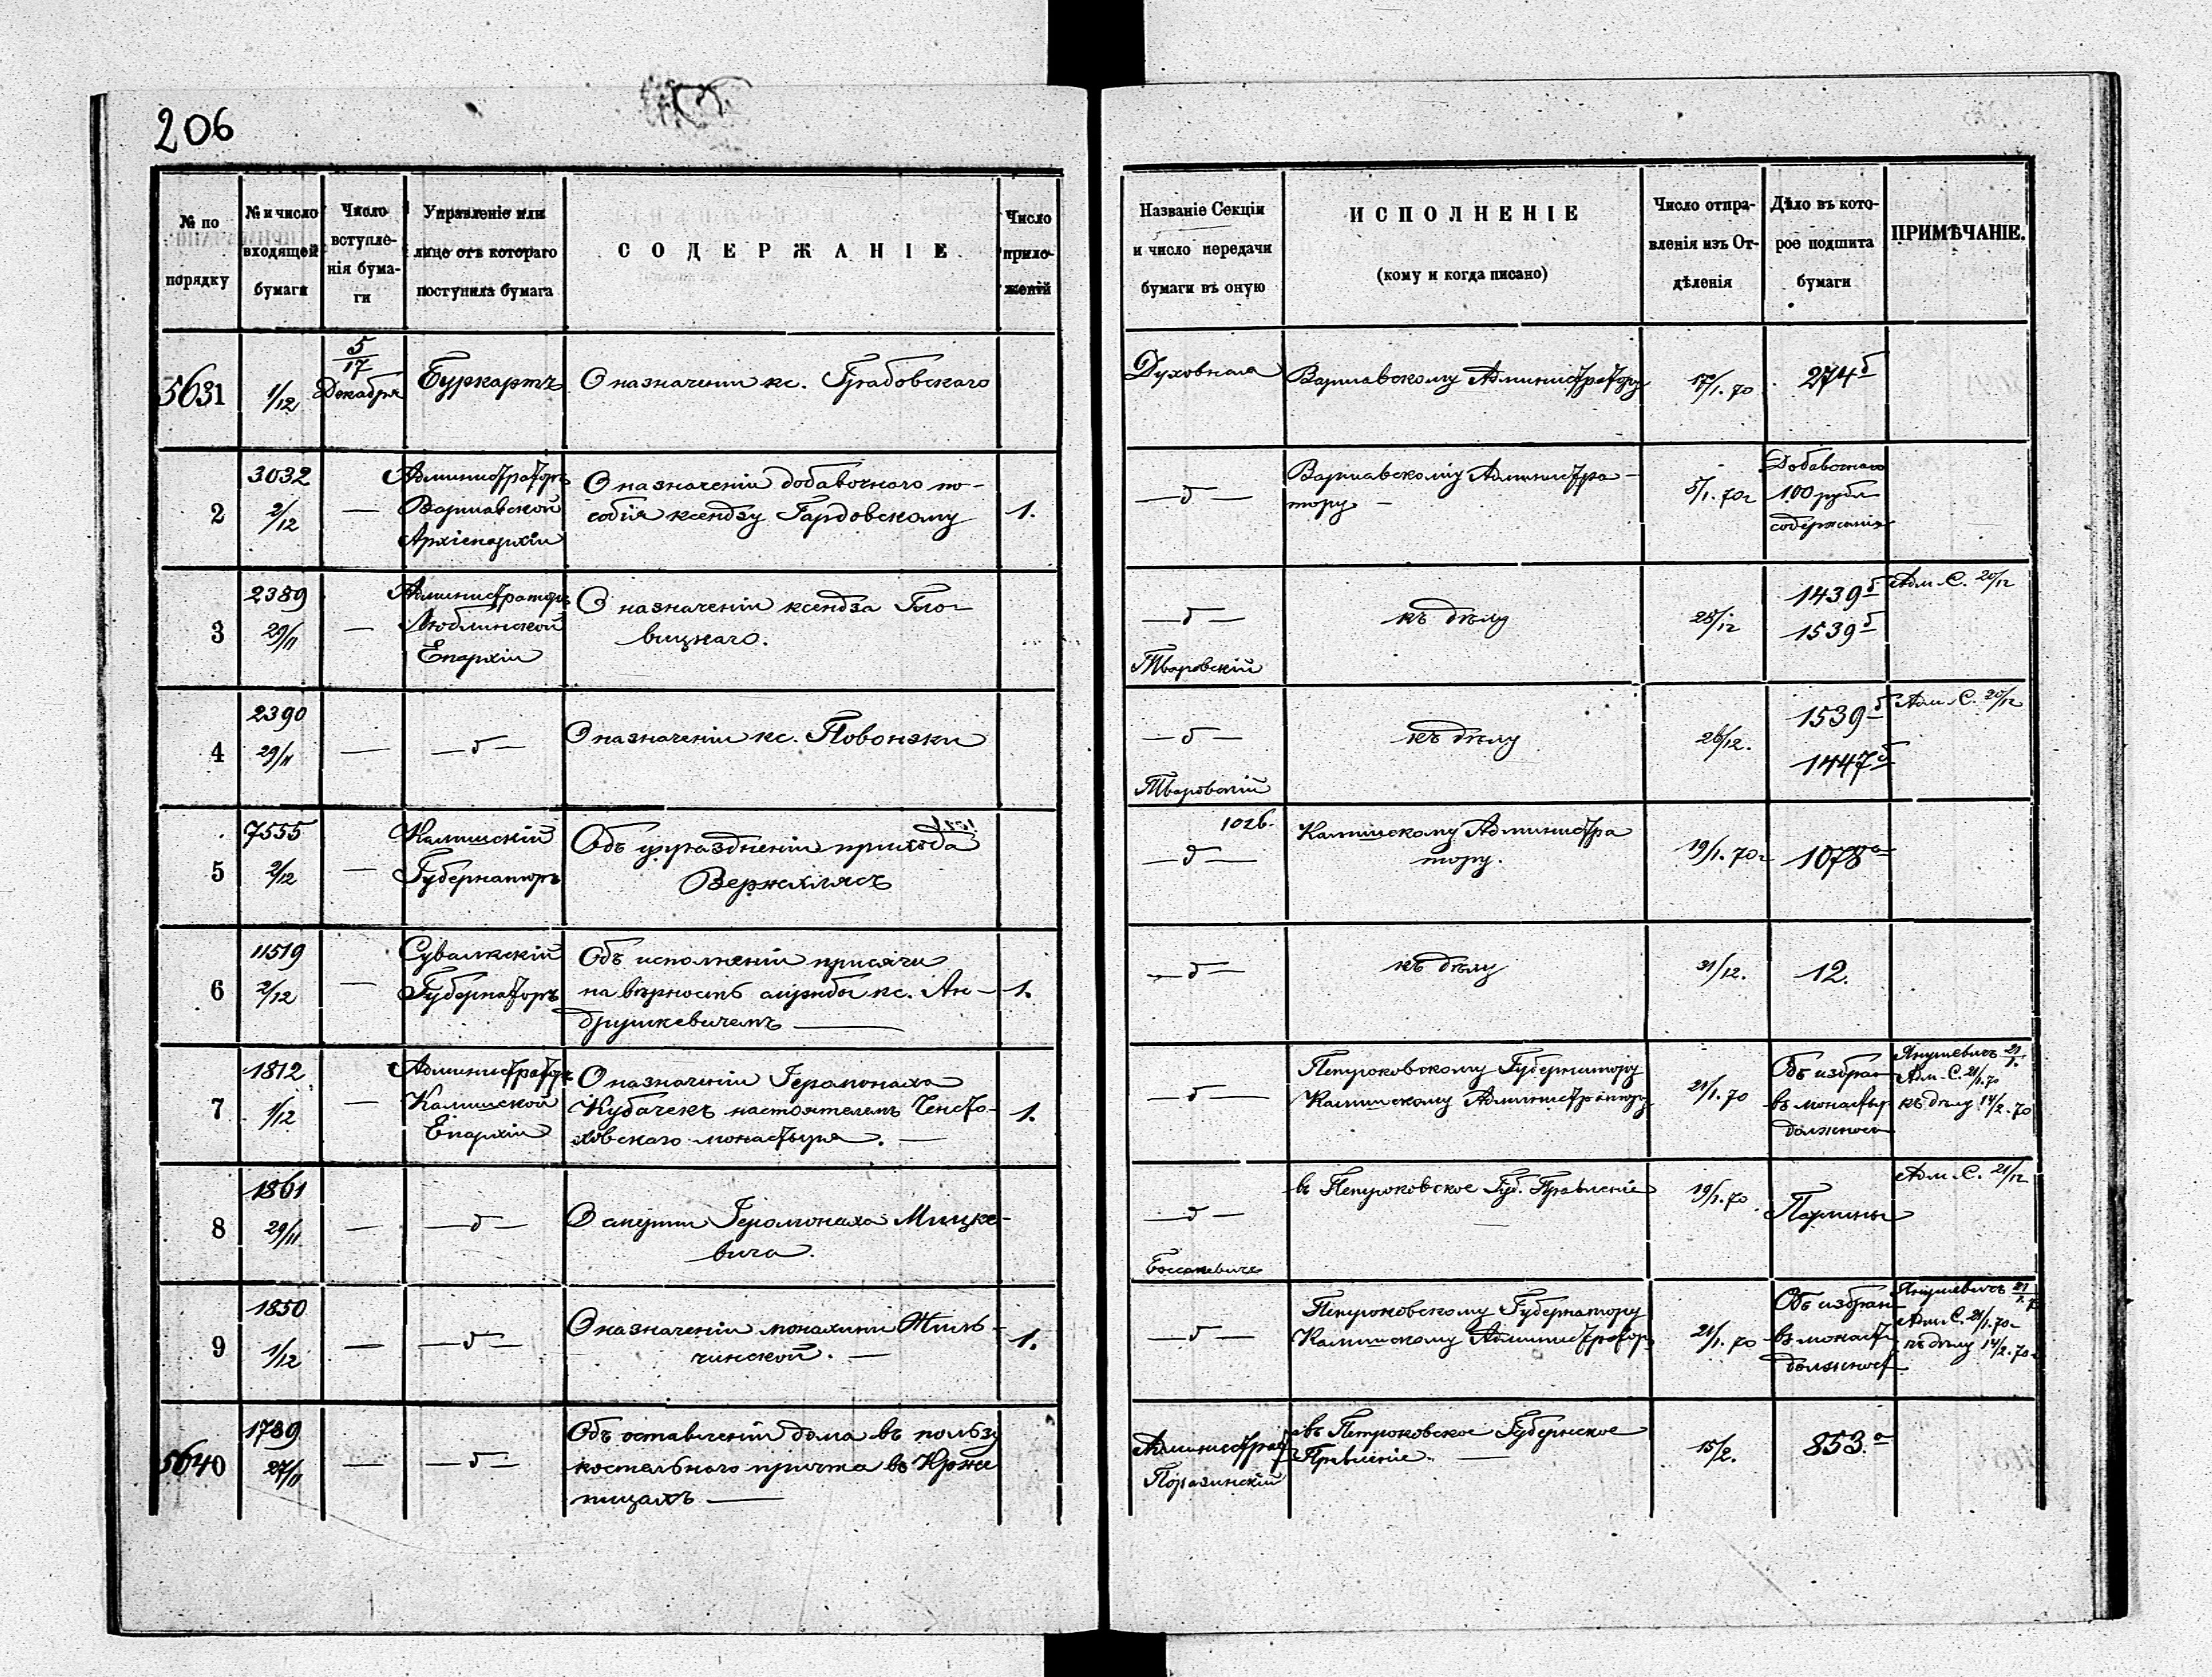 206
№ по порядку
№ и число входящей бумаги
Число вступле-
нія бума-
ги
Управленіе или
лице отъ котораго
поступила бумага
СОДЕРЖАНІЕ
Число
прило-
женій
Названіе Секціи
и число передачи
бумаги въ оную
ИСПОЛНЕНІЕ
(кому и когда писано)
Число отпра-
вленія изъ От-
дѣленія
Дѣло въ кото-
рое подшита
бумаги
ПРИМѢЧАНІЕ.
5631
1/12
5/17
Декабря
Буркартъ
О назначеніи кс. Грабовскаго
Духовная
Варшавскому Администратору
17/1. 70
274б
2
3032
2/12
—
Администраторъ
Варшавской
Архіепархіи
О назначеніи добавочнаго по-
собія ксендзу Гардовскому
1.
— д —
Варшавскому Администра-
тору —
5/1. 70г
Добавочнаго
100 рубл
содержанія
3
2389
29/11
—
Администраторъ
Люблинской
Епархіи
О назначеніи ксендза Гло-
вицкаго.
— д —
Тваровскій
къ дѣлу
28/12
1439б
1539б
Адм. С. 20/12
4
2390
29/11
—
— д —
О назначеніи кс. Повонзки
— д —
Тваровскій
къ дѣлу
28/12.
1539б
1447б
Адм. С. 20/12
5
7555
2/12
—
Калишскій
Губернаторъ
Объ упраздненіи прихода
Вержхлясъ
102б.
— д —
Калишскому Администра
тору.
19/1. 70г
1078а
6
11519
2/12
—
Сувалкскій
Губернаторъ
Объ исполненіи присяги
на вѣрность службы кс. Ан-
друшкевичемъ —
1.
— д —
къ дѣлу
31/12.
12.
7
1812
1/12
—
Администраторъ
Калишской
Епархіи
О назначеніи Іеромонаха
Кубачекъ настоятелемъ Ченсто-
ховскаго монастыря. —
1.
— д —
Петроковскому Губернатору
Калишскому Администратору
21/1. 70
Объ избран
въ монастыр
должност
Янушевичъ 21/1.
Адм. С. 21/1. 70
къ дѣлу 14/2. 70
8
1861
29/11
—
— д —
О смерти Іеромонаха Мицке-
вича.
— д —
въ Петроковское Губ. Правленіе
19/1. 70
Адм. С. 21/12
9
1850
1/12
—
— д —
О назначеніи монахини Жиль-
чинской. —
1.
— д —
Петроковскому Губернатору
Калишскому Администратору
21/1. 70
Объ избран
въ монаст
должност
Янушевичъ 21/1. 70
Адм. С. 21/1. 70г
къ дѣлу 14/2. 70г
5640
1789
27/11
—
— д —
Объ оставленіи дома въ пользу
костельнаго причта въ Крже
пицахъ —
Администрат
Поразинскій
въ Петроковское Губернское
Правленіе. —
15/2.
853.а